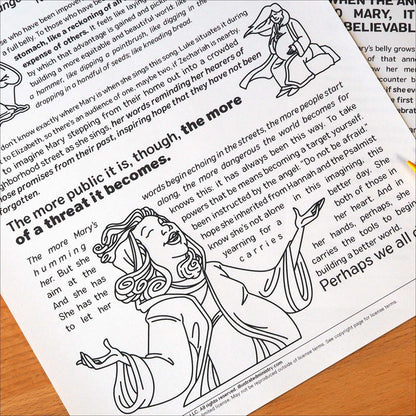 those who have been improver
a full belly. To those who have be
stomach, like a reckoning of all
expense of others. It feels like taying
by which that advantage is signed an
building a more equitable and beautiful world, like
a hammer, like dipping a paintbrush, like digging in the
dropping in a handful of seeds, like kneading bread.
don't know exactly where Mary is when she sings this song. Luke situates it during
to Elizabeth, so there's an audience of one, maybe two, if Zechariah is nearby.
to imagine Mary stepping from their home out into a crowded
neighborhood street as she sings, her words reminding her hearers of
those promises from their past, inspiring hope that they have not been
forgotten.
The more public it is, though, the more
of a threat it becomes.
The more Mary's
humming
her. But she
aim at the
And she has
She has the
to let her
words begin echoing in the streets, the more people start
along, the more dangerous the world becomes for
knows this: it has always been this way. To take
powers that be means becoming a target yourself.
been instructed by the angel: "Do not be afraid."
hope she inherited from Hannah and the Psalmist
know she's not alone in this imagining, this
yearning for a better day. She
carries both of those in
her heart. And in
her hands, perhaps, she
carries the tools to begin
building a better world.
Perhaps we all c
WHEN THE AN
TO MARY, IT
BELIEVABL
y's belly grows
of that anno
her mo
counter b
if she ev
LLC. All rights reserved. illustratedministry.com
limited license. May not be reproduced outside of license terms. See copyright page for license terms.